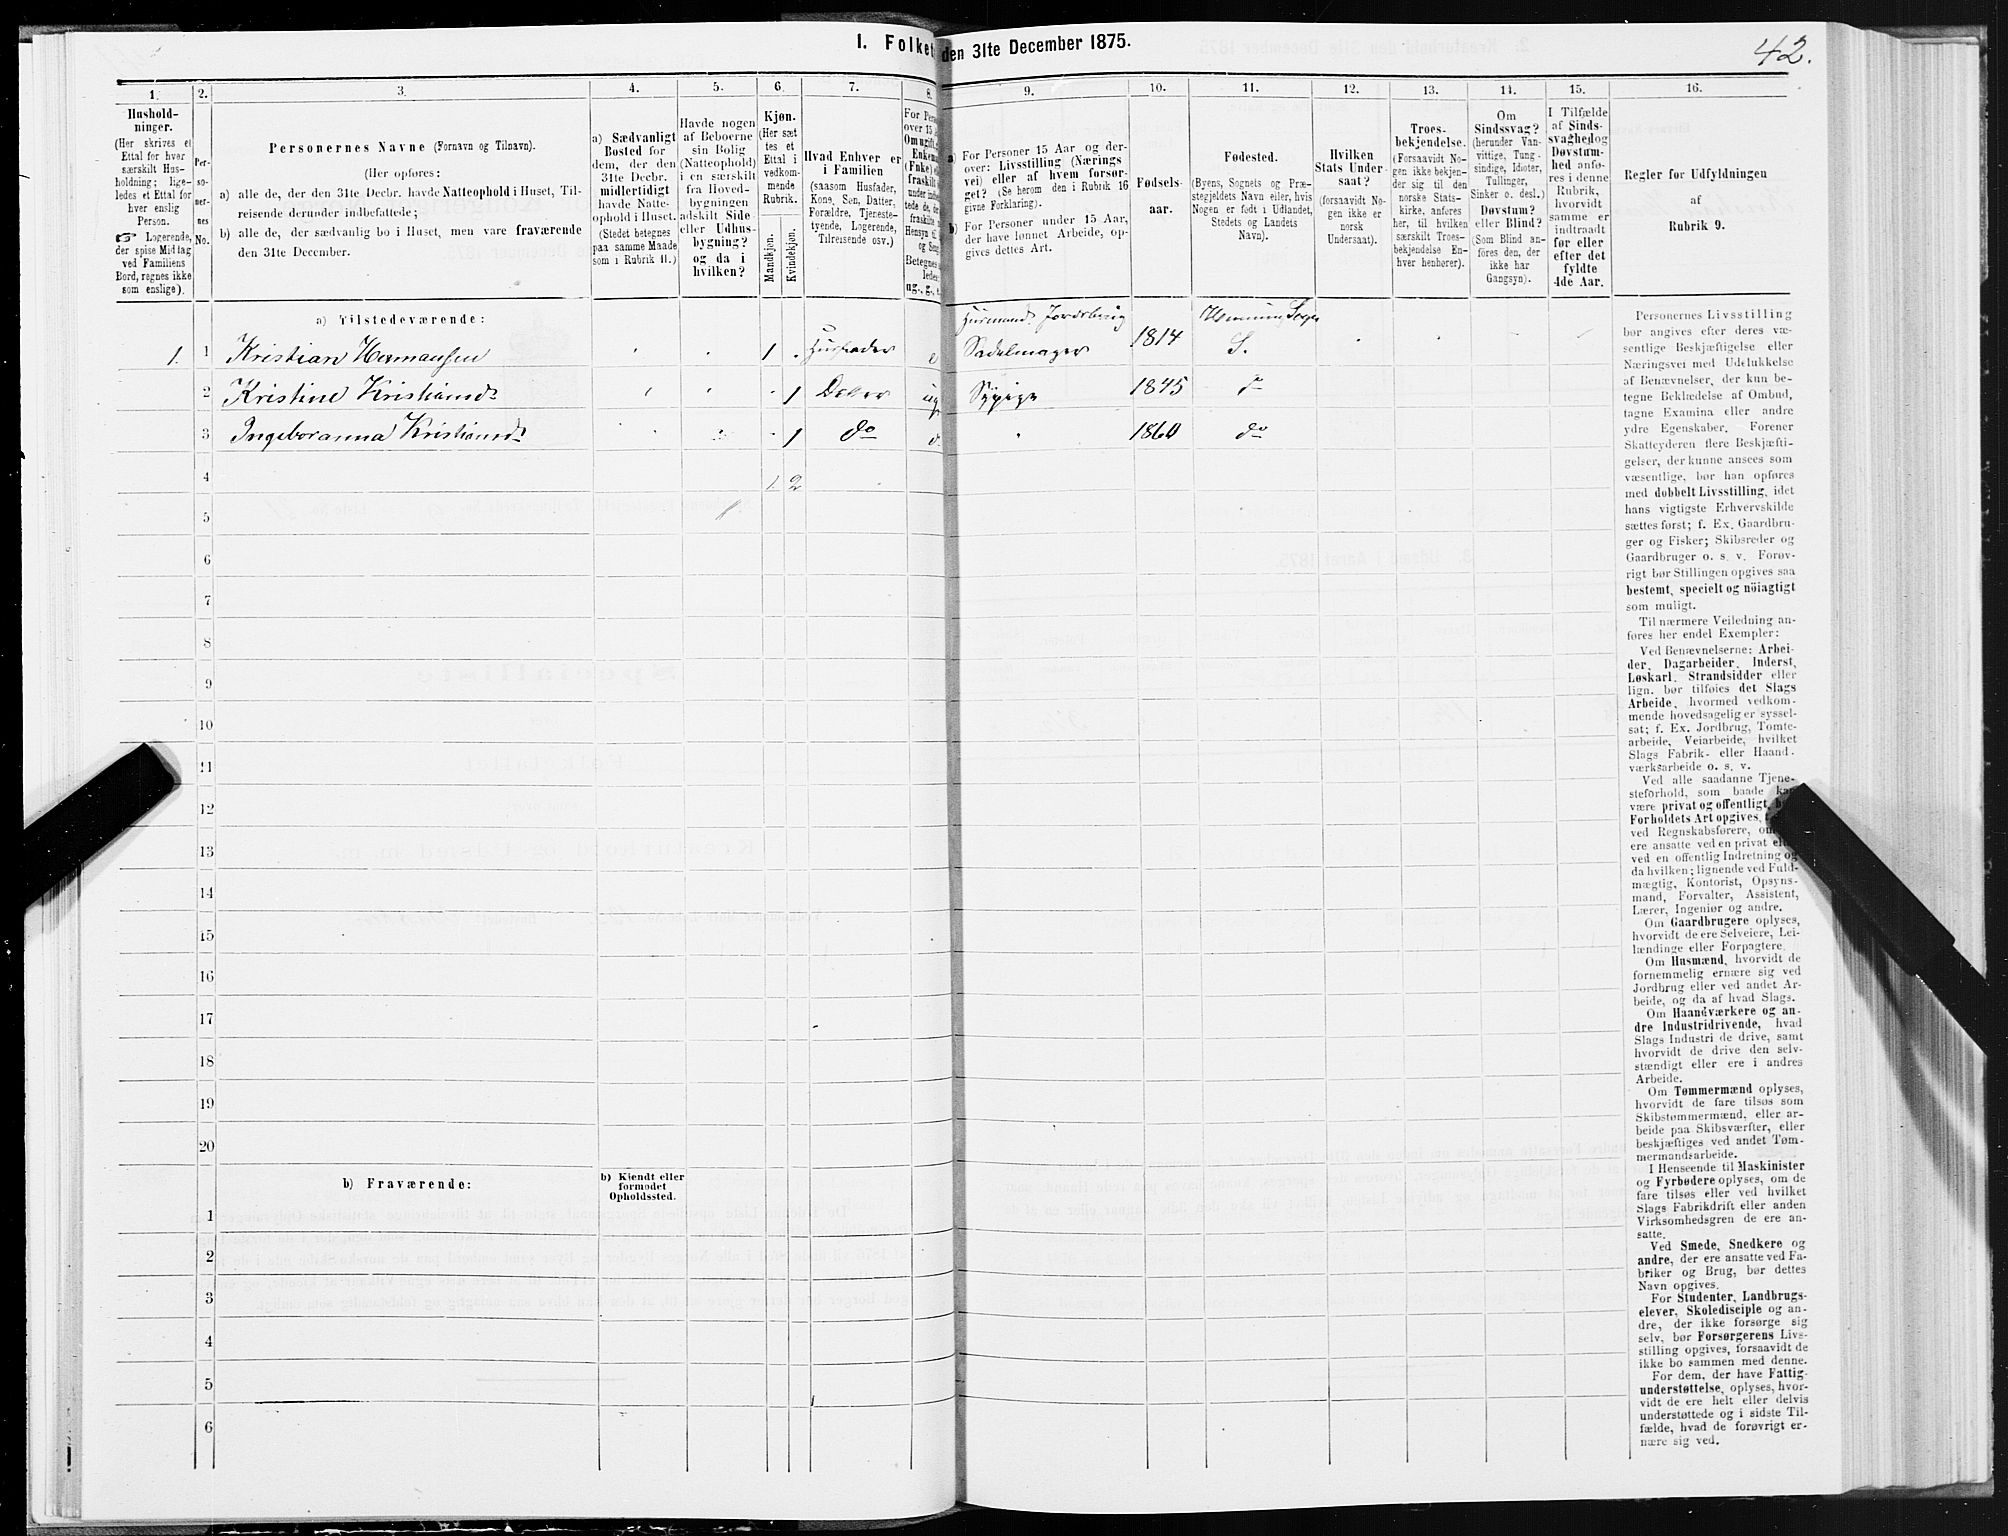 I. Folket
den 31te December 1875.
42.
1.
2.
3.
4.
5.
6.
7.
8.
9.
10.
11.
12.
13.
14.
15.
16.
Hushold-
ninger.
(Her skrives et
Ettal for hver
særskilt Hus-
holdning; lige-
ledes et Ettal for
hver enslig
Person.
☞ Logerende,
der spise Middag
ved Familiens
Bord, regnes ikke
som enslige).
Per-
so-
ner-
nes
No.
Personernes Navne (Fornavn og Tilnavn).
(Her opføres:
a) alle de, der den 31te Decbr. havde Natteophold i Huset, Til-
reisende derunder indbefattede;
b) alle de, der sædvanlig bo i Huset, men vare fraværende
den 31te December.
a) Sædvanligt
Bosted for
dem, der den
31te Decbr.
midlertidigt
havde Natte-
ophold i Huset.
(Stedet betegnes
paa samme Maade
som i Rubrik 11.)
Havde nogen
af Beboerne
sin Bolig
(Natteophold)
i en særskilt
fra Hoved-
bygningen
adskilt Side-
eller Udhus-
bygning?
og da i
hvilken?
Kjøn.
(Her sæt-
tes et
Ettal i
vedkom-
mende
Rubrik.
Mandkjøn.
Kvindekjøn.
Hvad Enhver er
i Familien
(saasom Husfader,
Kone, Søn, Datter,
Forældre, Tjeneste-
tyende, Logerende,
Tilreisende osv.)
For Perso
over 15 a
Om ugift, g
Enkema
(Fnke) e
fraskilt
under indb
tede de, de
fraskilte
Hensyn til
og Seng
Betegnes s
ledes:
ug., g., e.
a) For Personer 15 Aar og der-
over: Livsstilling (Nærings-
vei) eller af hvem forsør-
get? (Se herom den i Rubrik 16
givne Forklaring).
b) For Personer under 15 Aar,
der have lønnet Arbeide, op-
gives dettes Art.
Fødsels-
aar.
Fødested.
(Byens, Sognets og Præ-
stegjeldets Navn eller, hvis
Nogen er født i Udlandet,
Stedets og Landets
Navn).
Hvilken
Stats Under-
saat?
(forsaavidt No-
gen ikke er
norsk
Undersaat).
Troes-
bekjendelse.
(Forsaavidt No-
gen ikke bekjen-
der sig til den
norske Stats-
kirke, anføres
her, til hvilken
særskilt Troes-
bekjendelse En-
hver henhører).
Om
Sindssvag?
(herunder Van-
vittige, Tung-
sindige, Idioter,
Tullinger,
Sinker o. desl.)
Døvstum?
eller Blind?
(Som Blind an-
føres den, der
ikke har
Gangsyn).
I Tilfælde
af Sinds-
svaghed og
Døvstum-
hed anfø-
res i denne
Rubrik,
hvorvidt
samme er
indtraadt
før eller
efter det
fyldte
4de Aar.
Regler for Udfyldningen
af
Rubrik 9.
a) Tilstedeværende:
Husmand. Jordbrug
1. 1 Kristian Hermansen 1 Husfader e Sadelmager 1814 S.
2 Kristine Kristiansd. 1 Datter ug Sypige 1845 do
3 Ingeboranna Kristiansd. 1 do 1860 do
4 1 2
5
6
7
8
9
10
11
12
13
14
15
16
17
18
19
20
b) Fraværende:
b) Kjendt eller
formodet
Opholdssted.
1
2
3
4
5
6
Personernes Livsstilling
bør angives efter deres væ-
sentlige Beskjæftigelse eller
Næringsvei med Udelukkelse
af Benævnelser, der kun be-
tegne Beklædelse af Ombud,
tagne Examina eller andre
ydre Egenskaber. Forener
Skatteyderen flere Beskjæfti-
gelser, der kunne ansees som
væsentlige, bør han opføres
med dobbelt Livsstilling, idet
hans vigtigste Erhvervskilde
sættes først; f. Ex. Gaardbru-
ger og Fisker; Skibsreder og
Gaardbruger o. s. v. Forøv-
rigt bør Stillingen opgives saa
bestemt, specielt og nöiagtigt
som muligt.
Til nærmere Veiledning an-
føres her endel Exempler:
Ved Benævnelserne: Arbei-
der, Dagarbeider, Inderst,
Løskarl, Strandsidder eller
lign. bør tilføies det Slags
Arbeide, hvormed vedkom-
mende hovedsagelig er syssel-
sat; f. Ex. Jordbrug, Tomte-
arbeide, Veiarbeide, hvilket
Slags Fabrik- eller Haand-
værksarbeide o. s. v.
Ved alle saadanne Tjene-
steforhold, som baade kan
være privat og offentligt, bør
Forholdets Art opgives,
ved Regnskabsførere, om
ere ansatte ved en privat eller
ved en offentlig Indretning og
da hvilken; lignende ved Fuld-
mægtig, Kontorist, Opsyns-
mand, Forvalter, Assistent,
Lærer, Ingeniør og andre.
Om Gaardbrugere oplyses,
hvorvidt de ere Selveiere, Lei-
lændinge eller Forpagtere.
Om Husmænd, hvorvidt de
fornemmelig ernære sig ved
Jordbrug eller ved andet Ar-
beide, og da af hvad Slags.
Om Haandværkere og an-
dre Industridrivende, hvad
Slags Industri de drive, samt
hvorvidt de drive den selv-
stændigt eller ere i andres
Arbeide.
Om Tømmermænd oplyses,
hvorvidt de fare tilsøs som
Skibstømmermænd, eller ar-
beide paa Skibsværfter, eller
beskjæftiges ved andet Tøm-
mermandsarbeide.
I Henseende til Maskinister
og Fyrbødere oplyses, om de
fare tilsøs eller ved hvilket
Slags Fabrikdrift eller anden
Virksomhedsgren de ere an-
satte.
Ved Smede, Snedkere og
andre, der ere ansatte ved Fa-
briker og Brug, bør dettes
Navn opgives.
For Studenter, Landbrugs-
elever, Skoledisciple og an-
dre, der ikke forsørge sig
selv, bør Forsørgerens Livs-
stilling opgives, forsaavidt de
ikke bo sammen med denne.
For dem, der have Fattig-
understøttelse, oplyses, hvor-
vidt de ere helt eller delvis
understøttede og i sidste Til-
fælde, hvad de forøvrigt er-
nære sig ved.